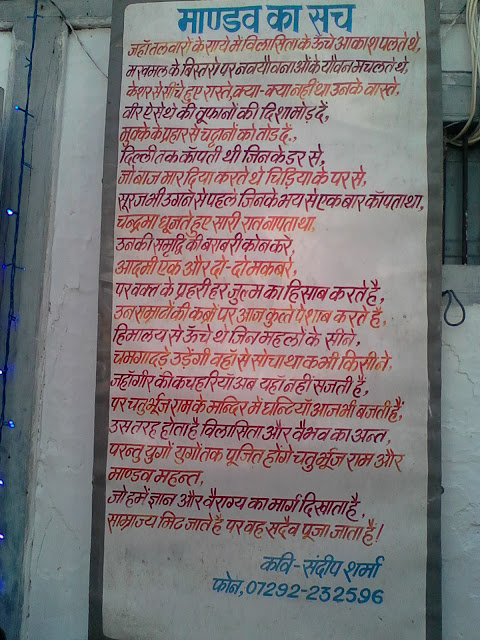 माण्डव का सच
जहाँ तलवारों के साये में विलासिता के ऊँचे आकाश पलते थे,
मखमल के बिस्तरों पर नवयौवनाओं के यौवन मचलते थे,
केशर से सींचे हुए रास्ते, क्या-क्या नहीं था उनके वास्ते.
वीर ऐसे थे की तूफानों की दिशा मोड़ दें,
मुक्के के प्रहार से चट्टानों को तोड़ दें.,
दिल्ली तक काँपती थी जिनके डर से,
जो बाज मार दिया करते थे चिड़िया के पर से,
सूरज भी उगने से पहले जिनके भय से एक बार काँपता था,
चन्द्रमा धूजते हुए सारी रात नापता था,
उनकी समृद्धि की बराबरी कौन करे,
आदमी एक और दो-दो मकबरे,
पर वक्त के प्रहरी हर जुल्म का हिसाब करते है,
उन सम्राटों की कब्रों पर आज कुत्ते पेशाब करते हैं,
हिमालय से ऊँचे थे जिन महलों के सीने,
चमगादड़े उड़ेगी वहाँ से सोचा था कभी किसी ने,
जहाँगीर की कचहरियाँ अब यहाँ नहीं सजती हैं,
पर चतुर्भूज राम के मन्दिर में घन्टियाँ आज भी बजती हैं,
उस तरह होता है विलासिता और वैभव का अन्त,
परन्तु युगों युगों तक पूजित होंगे चतुर्भूज राम और
माण्डव महन्त,
जो हमें ज्ञान और वैराग्य का मार्ग दिखाता है,
साम्राज्य मिट जाते है पर वह सदैव पूजा जाता है!
कवि-संदीप शर्मा
फोन,07292-232596